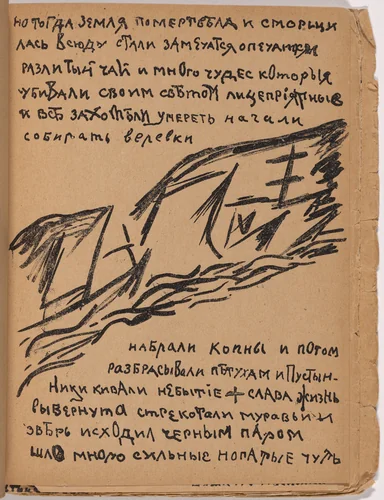 но тогда земля помертвѣла и сморщи
лась всюду стали замѣчатся опечатки
разлитый чай и много чудес которыя
убивали своим свѣтом лицепріятные
и всѣ захотѣли умереть начали
собирать веревки
набрали копны и потом
разбрасывали пѣтухам и пустын-
ники кивали небытіе + слава жизнь
вывернута стрекотали муравьи и
звѣрь исходил черным паром
шло много сильные